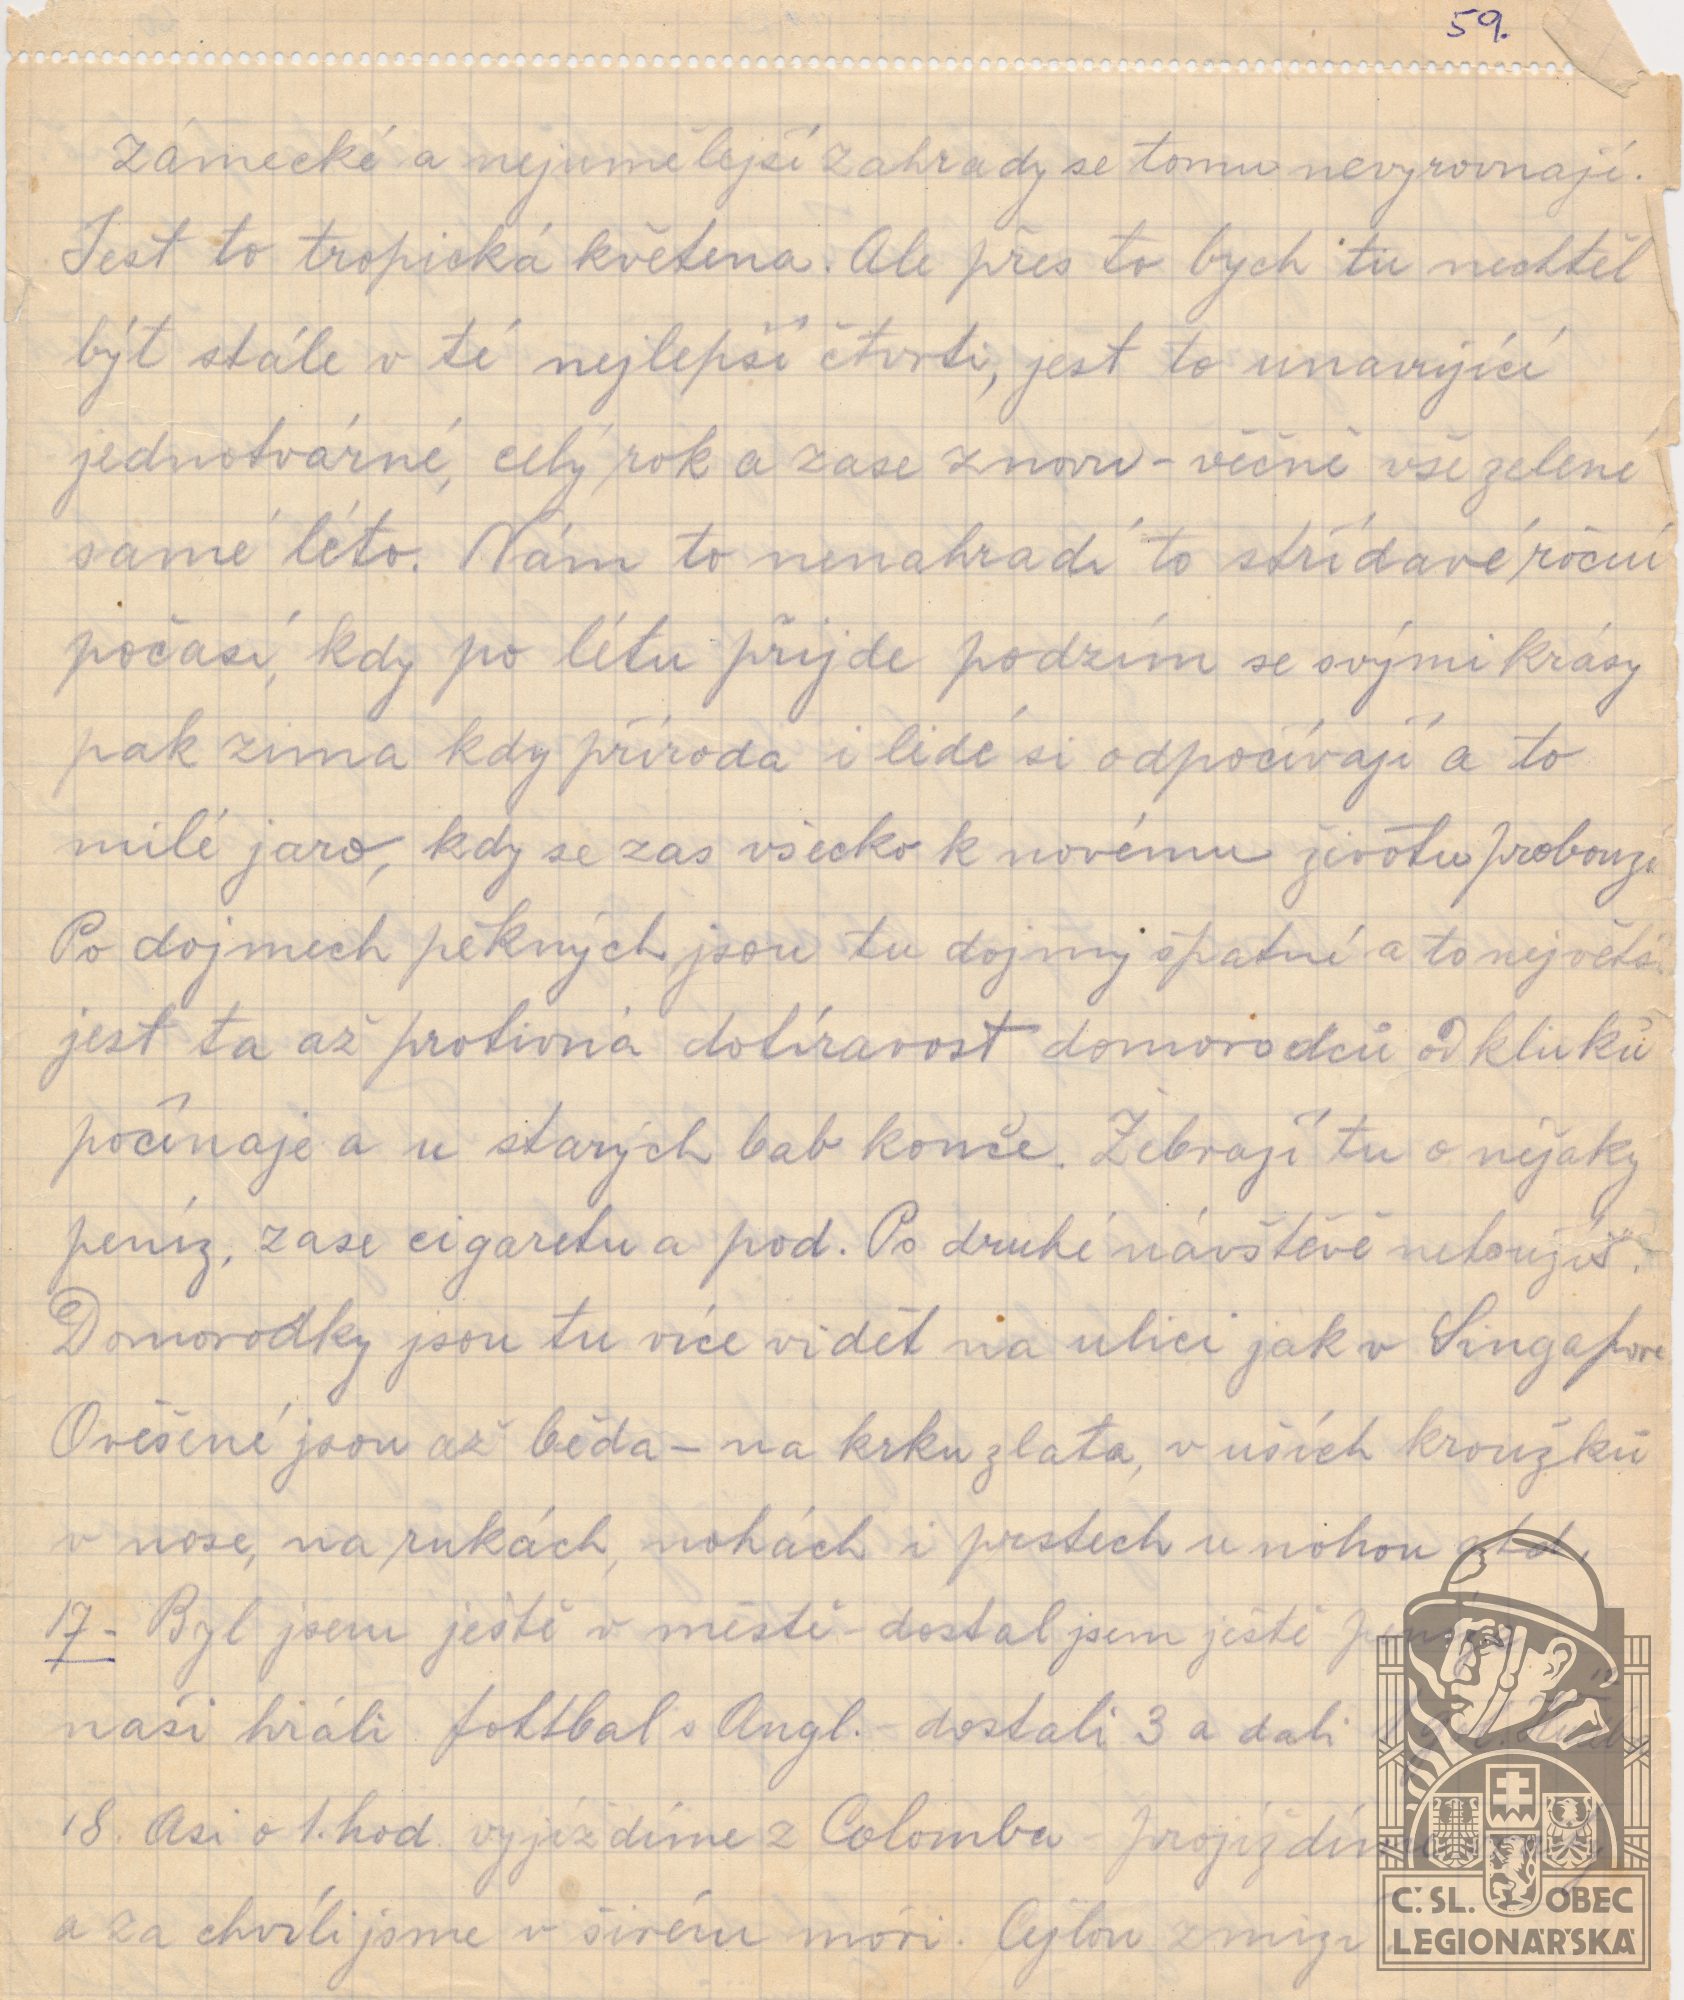 59.
Zámecké a nejumělejší zahrady se tomu nevyrovnají.
Jest to tropická květena. Ale přes to bych tu nechtěl
být stále v té nejlepší čtvrti, jest to unavující
jednotvárné, celý rok a zase znovu - věčně vše zelené
samé léto. Nám to nenahradí to střídavé roční
počasí, kdy po létu přijde podzim se svými krásy
pak zima kdy příroda i lidé si odpočívají a to
milé jaro, kdy se zas všecko k novému životu probouzí
Po dojmech pěkných jsou tu dojmy špatné a to největší
jest ta až protivná dotíravost domorodců od kluků
počínaje a u starých bab konče. Žebrají tu o nějaky
peníz, zase cigaretu a pod. Po druhé návštěvě netoužíš.
Domorodky jsou tu více vidět na ulici jak v Singapore
Ověšené jsou až běda - na krku zlata, v uších kroužků
v nose, na rukách, nohách i prstech u nohou atd.
17- Byl jsem ještě v městě - dostal jsem ještě
naši hráli fottbal s Angl. - dostali 3 a dali
18. Asi o 1. hod. vyjíždíme z Colomba - projíždíme
a za chvíli jsme v širém moři. Cejlon zmizí
Č. SL. OBEC
LEGIONÁŘSKÁ